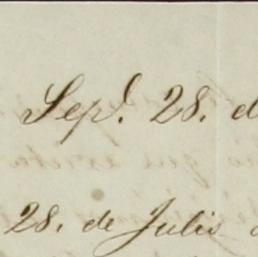 Sep.ᵉ 28. d
28. de Julio